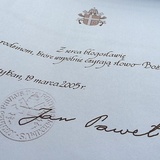 Z serca błogosławię
rodzinom, które wspólnie czytają słowo Boż
tykan, 19 marca 2005 r.
Jan Paweł